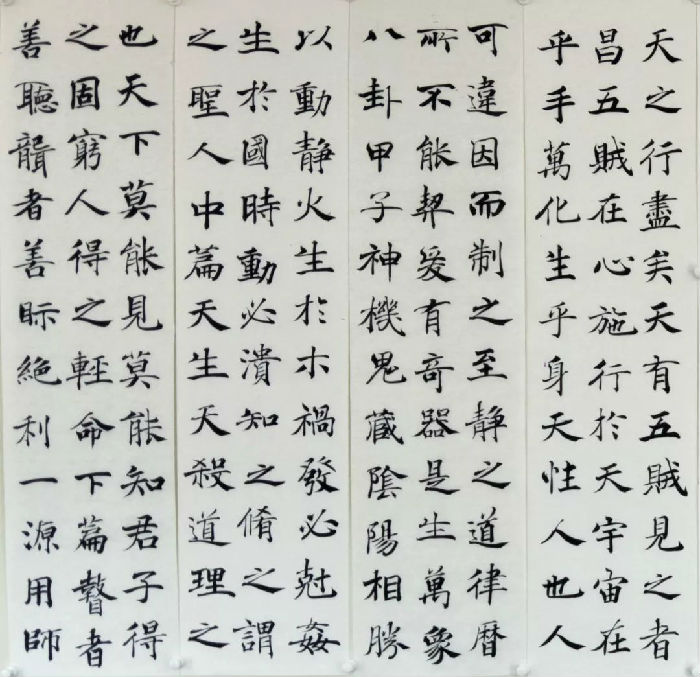 天之行盡矣天有五賊見之者
昌五賊在心施行於天宇宙在
乎手萬化生乎身天性人也人
可違因而制之至静之道律曆
所不能契爰有奇器是生萬象
八卦甲子神機鬼藏陰陽相勝
以動静火生於木禍發必尅姦
生於國時動必潰知之脩之謂
之聖人中篇天生天殺道理之
也天下莫能見莫能知君子得
之固窮人得之輕命下篇瞽者
善聽聾者善眎絶利一源用師